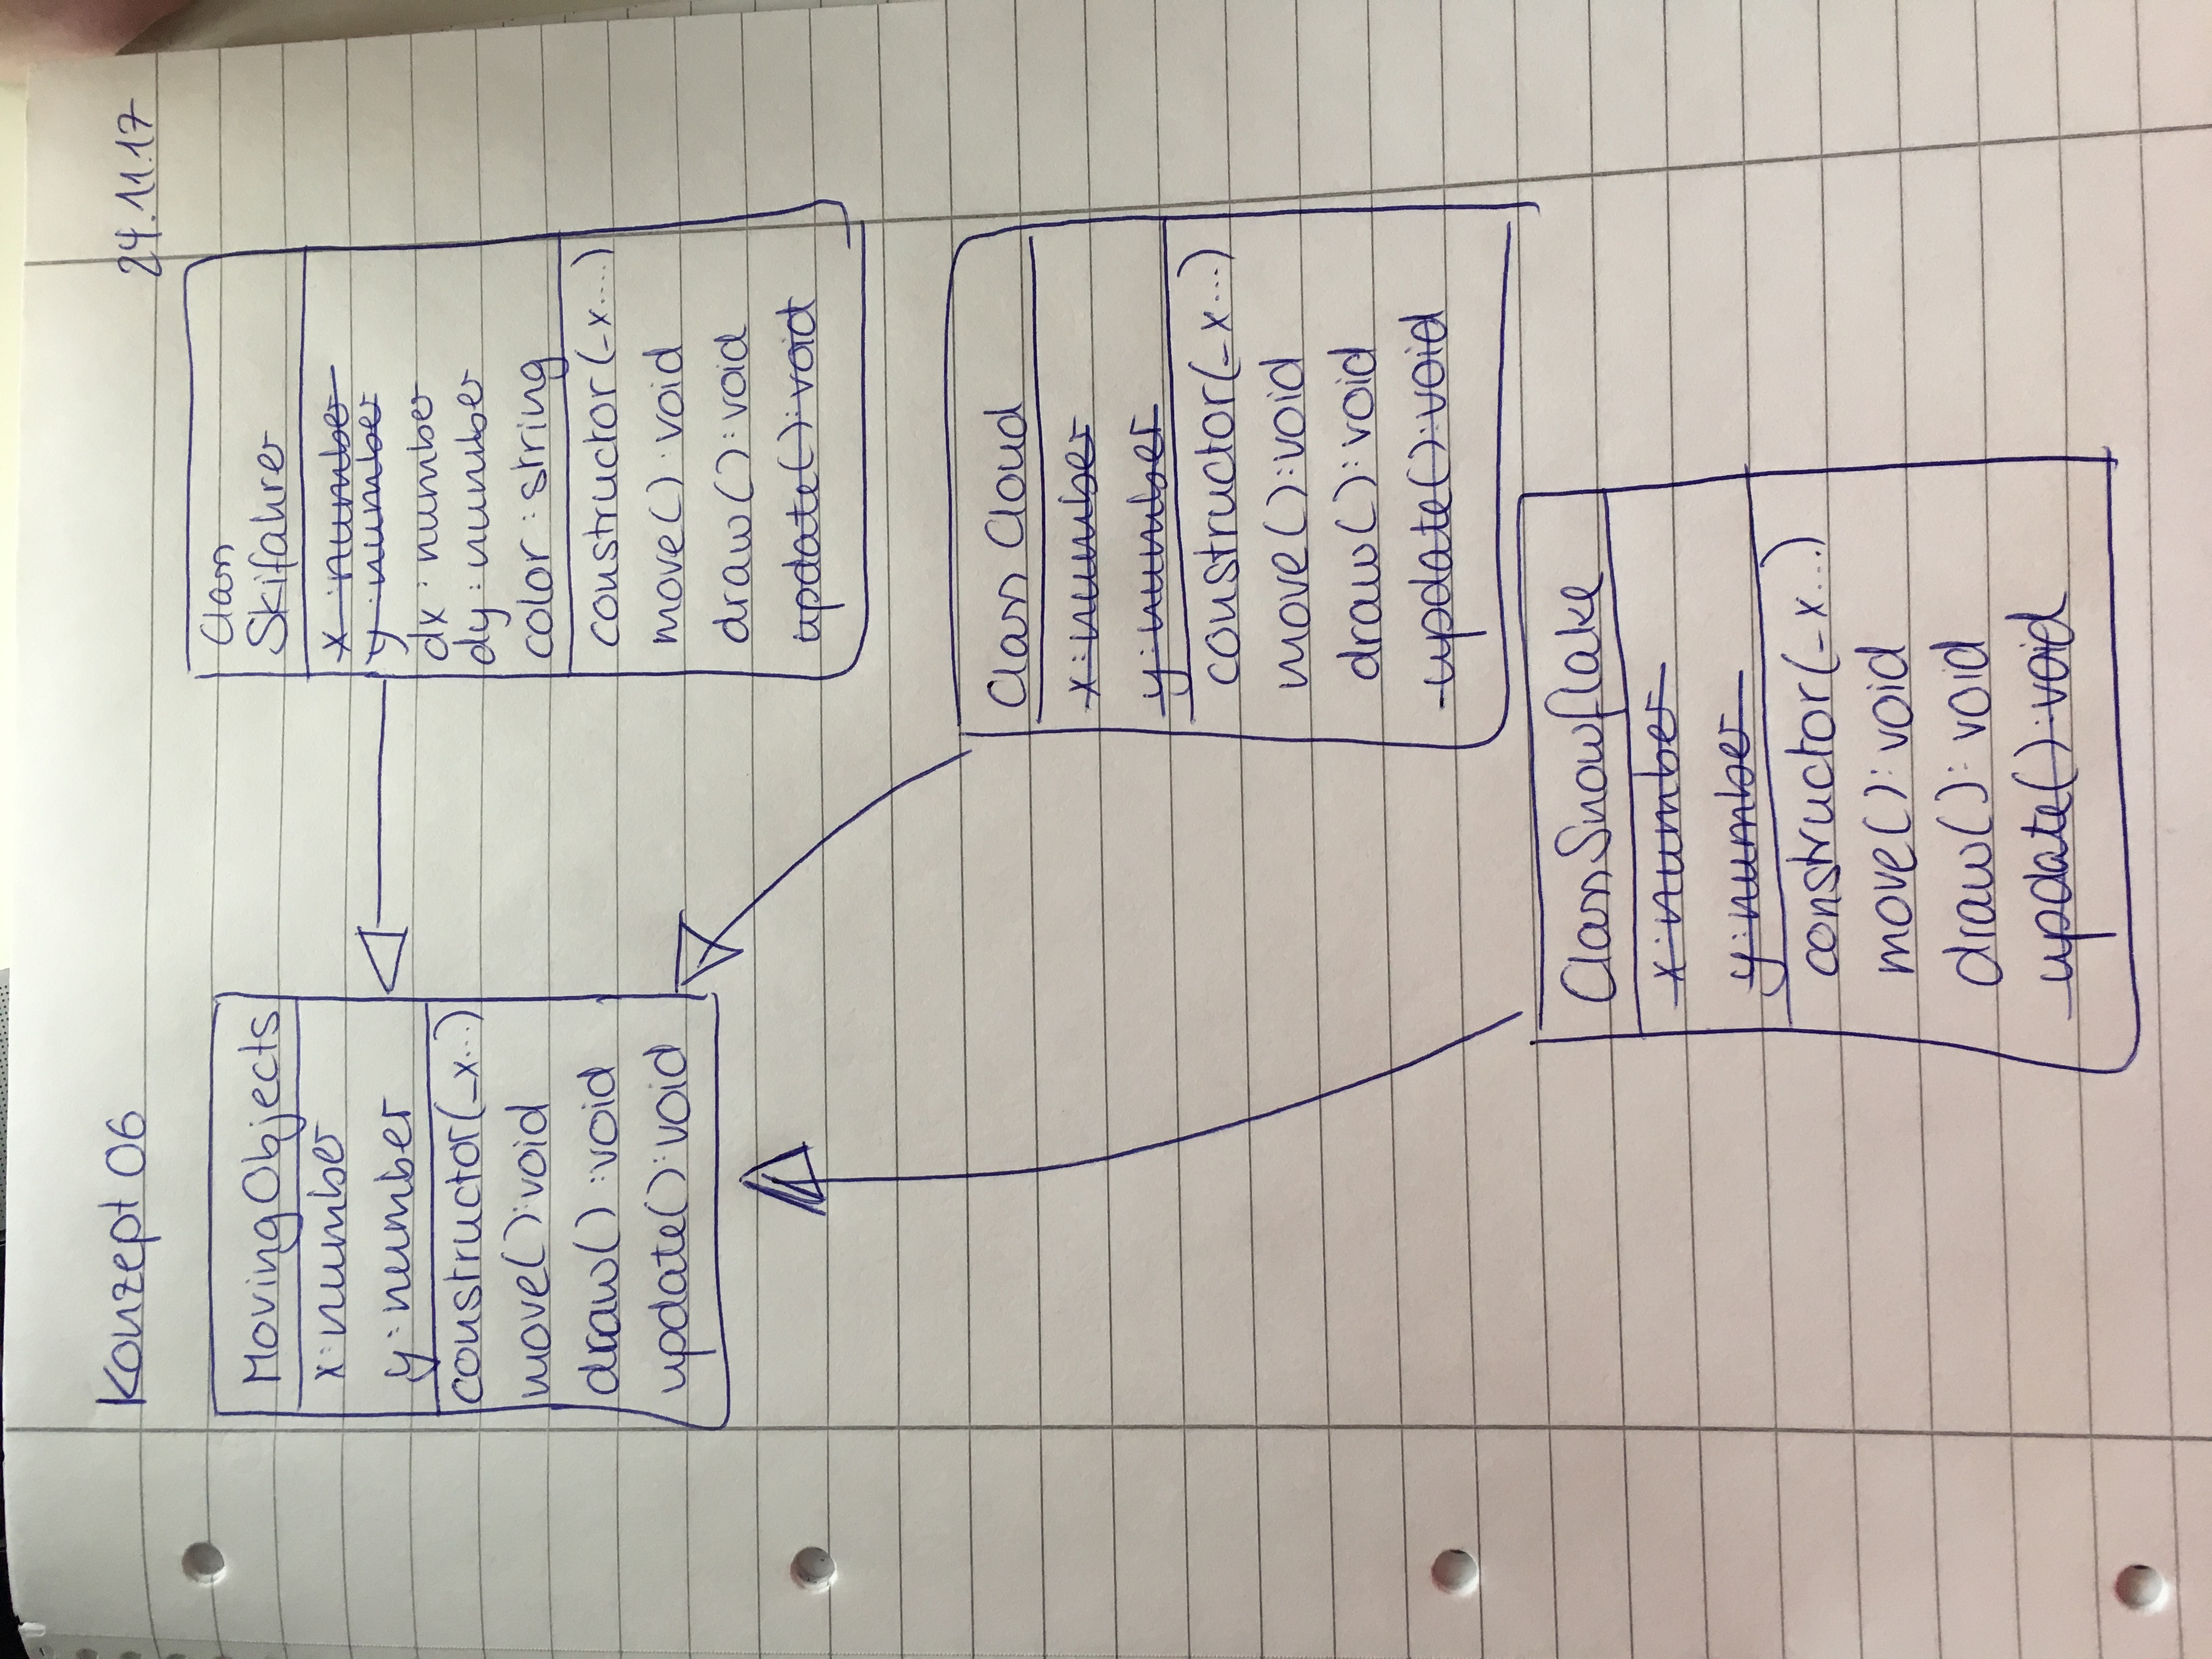 Konzept 06
24.11.17
MovingObjects
x:number
y:number
constructor(_x...)
move():void
draw():void
update():void
Class
Skifahrer
x:number
y:number
dx:number
dy:number
color:string
constructor(_x....)
move():void
draw():void
update():void
Class Cloud
x:number
y:number
constructor(_x...)
move():void
draw():void
update():void
Class Snowflake
x:number
y:number
constructor(_x...)
move():void
draw():void
update():void